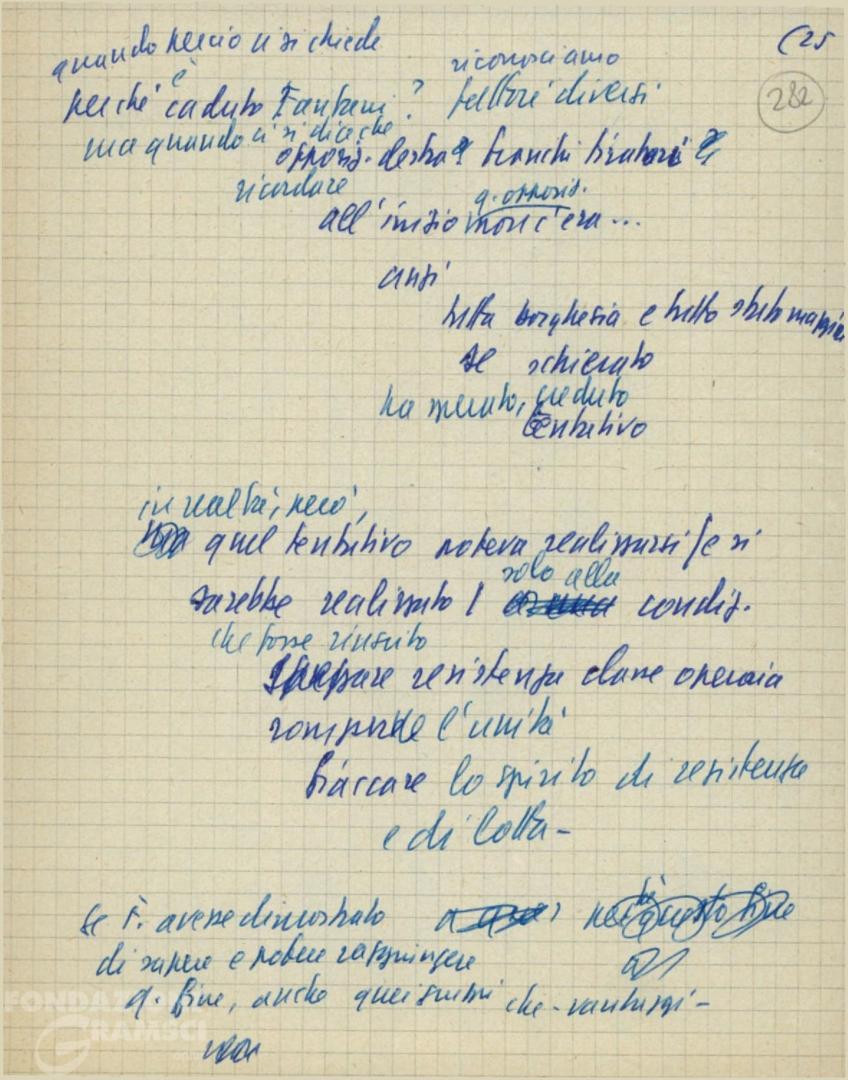 (25
282
quando perciò ci si chiede
riconosciamo
perché è caduto Fanfani? fattori diversi
ma quando ci si dice che
opposiz. destra? franchi tiratori?
ricordare
q. opposiz.
all'inizio non c'era...
anzi
tutta borghesia e tutto stato maggiore
se schierato
ha sperato, creduto
tentativo
in realtà, però,
ma quel tentativo poteva realizzarsi (e si
solo alla
sarebbe realizzato) condiz.
che fosse riuscito
spezzare resistenza classe operaia
romperle l'unità
fiaccare lo spirito di resistenza
e di lotta -
se F. avesse dimostrato questo fine
di sapere e poter raggiungere
q. fine, anche quei che - vantaggi -
FONDAZIONE
GRAMSCI